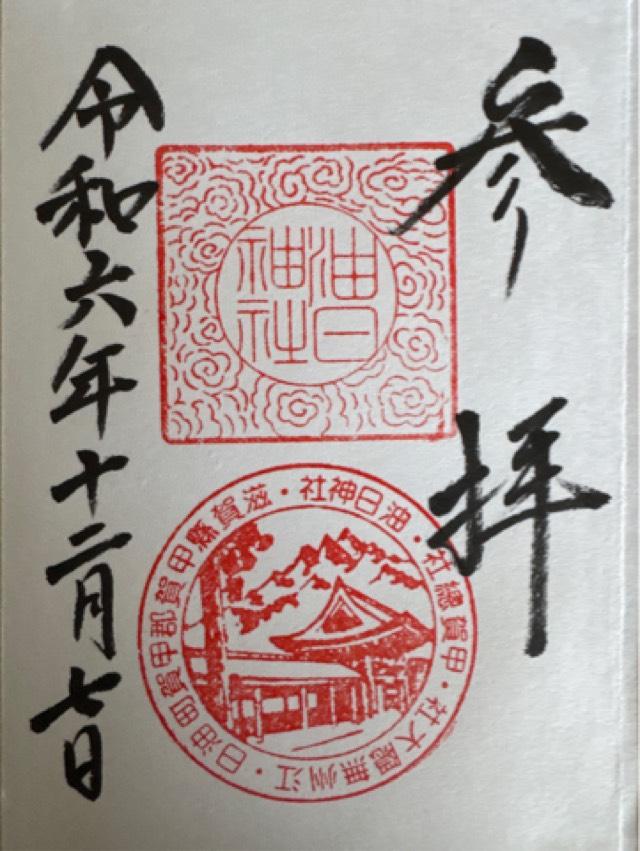 参拝
油日
神社
甲賀總社・油日神社・滋賀縣甲賀郡甲賀町油日・江州無隠大社・
令和六年十二月七日